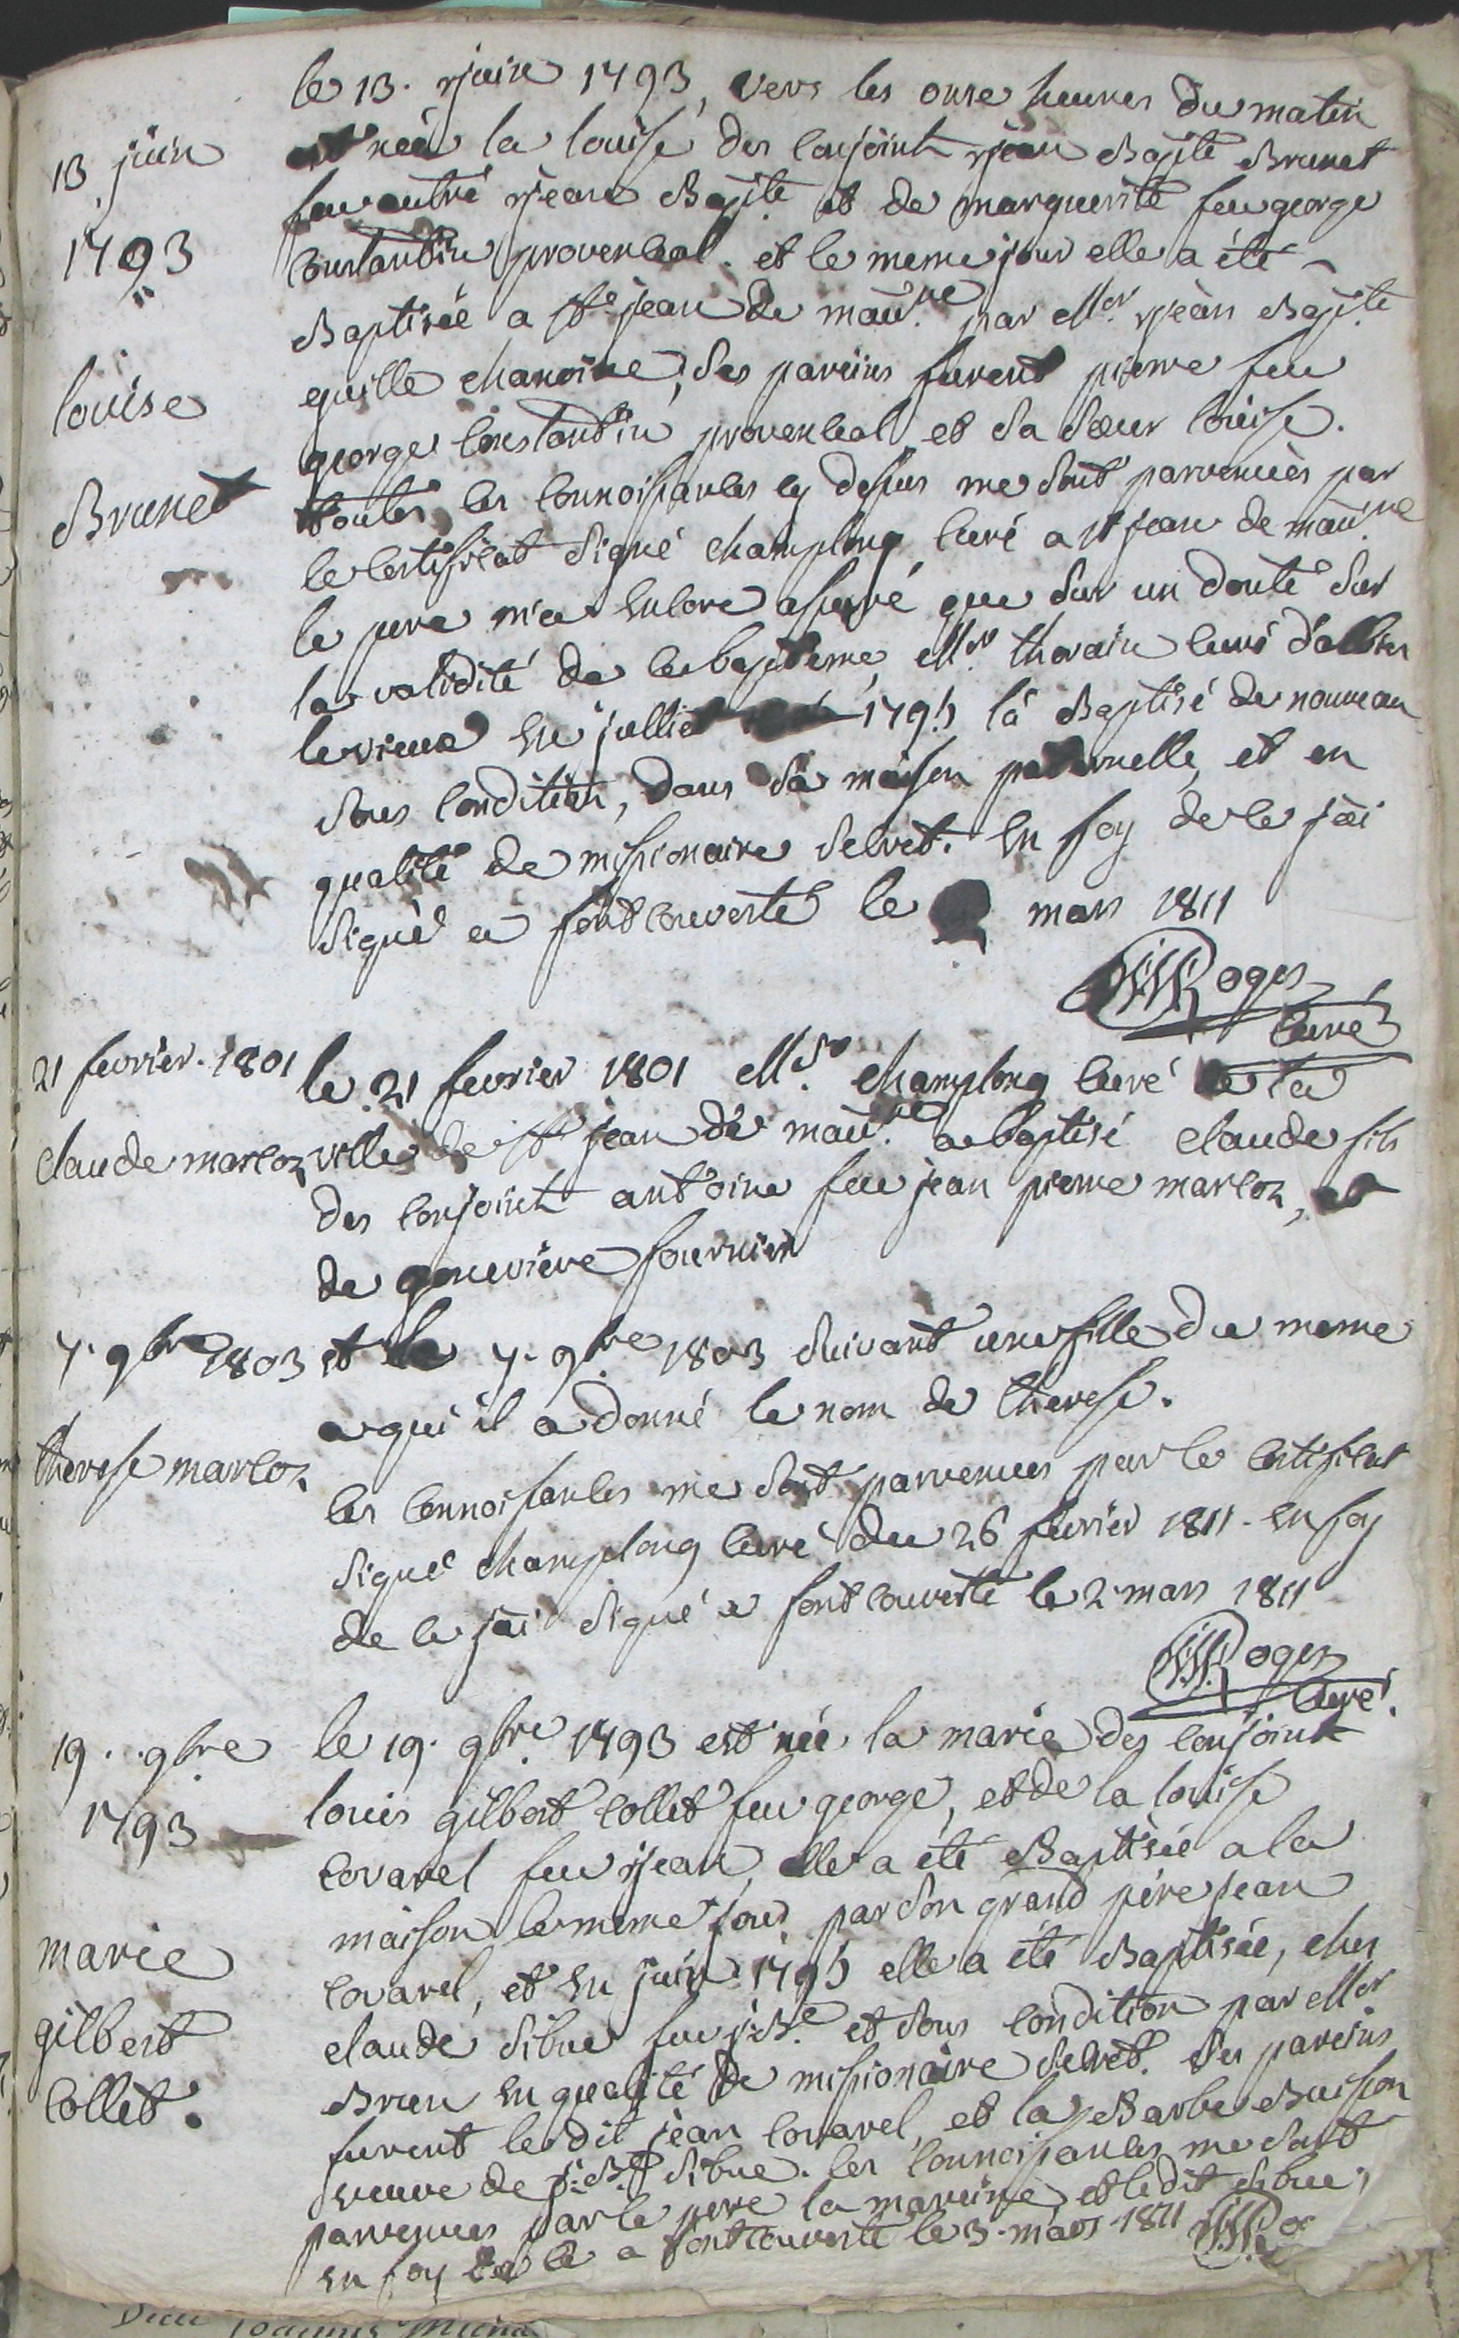 le 13. juin 1793, vers les onse heures du matin
13 juin
est née la louise des conjoint jean Bapte Brunet
feu autre jean Bapte et de marguerite feu george
1793
Constantin provenceal. et le meme jour elle a été
Baptisée a St jean de maunne par Mr jean Bapte
louise
chanoine, ses pareins furent pierre feu
george Constantin provenceal et sa sœur louise.
Brunet
toutes les connoissances cy dessus me sont parvenuës par
le certificat signé champlong curé a st jean de maunne
le pere m'a encore assuré que sur un doute sur
la validité de ce bapteme, Mr thorain curé d'albiez
le vieux en julliet 1795 l'a Baptisé de nouveau
sous condition, dans sa maison paternelle, et en
qualité de missionaire secret. en foy de ce j'ai
signé a fontcouverte le mars 1811
Roges
curé
21 fevrier. 1801
le 21 fevrier 1801 Mr champlong curé de la
claude marcoz
ville de St jean de maunne a baptisé claude fils
des conjoint antoine feu jean pierre marcoz, et
de genevieve fournier
7. 9bre 1803
et le 7. 9bre 1803 suivant une fille du meme
a qui il a donné le nom de therese.
therese marcoz
les connoissances me sont parvenues par le certificat
signé champlong curé du 26 fevrier 1811. en foy
de ce j'ai signé a fontcouverte le 2 mars 1811
Roges
curé.
19. 9bre
le 19. 9bre 1793 est née la marie des conjoint
1793
louis gilbert collet feu george, et de la louise
covarel feu jean, elle a été Baptisée a la
maison le meme jour par son grand pére jean
marie
covarel, et en juin 1795 elle a été Baptisée, ches
gilbert
claude sibue feu j: Bte et sous condition par Mr
collet.
Brun en qualité de missionaire secret. ses pareins
furent le dit jean covarel, et la Barbe Buisson
veuve de j: Bte sibue. les connoissances me sont
parvenues par le pere la mareine, et le dit sibue,
en foy de ce a fontcouverte le 3. mars 1811